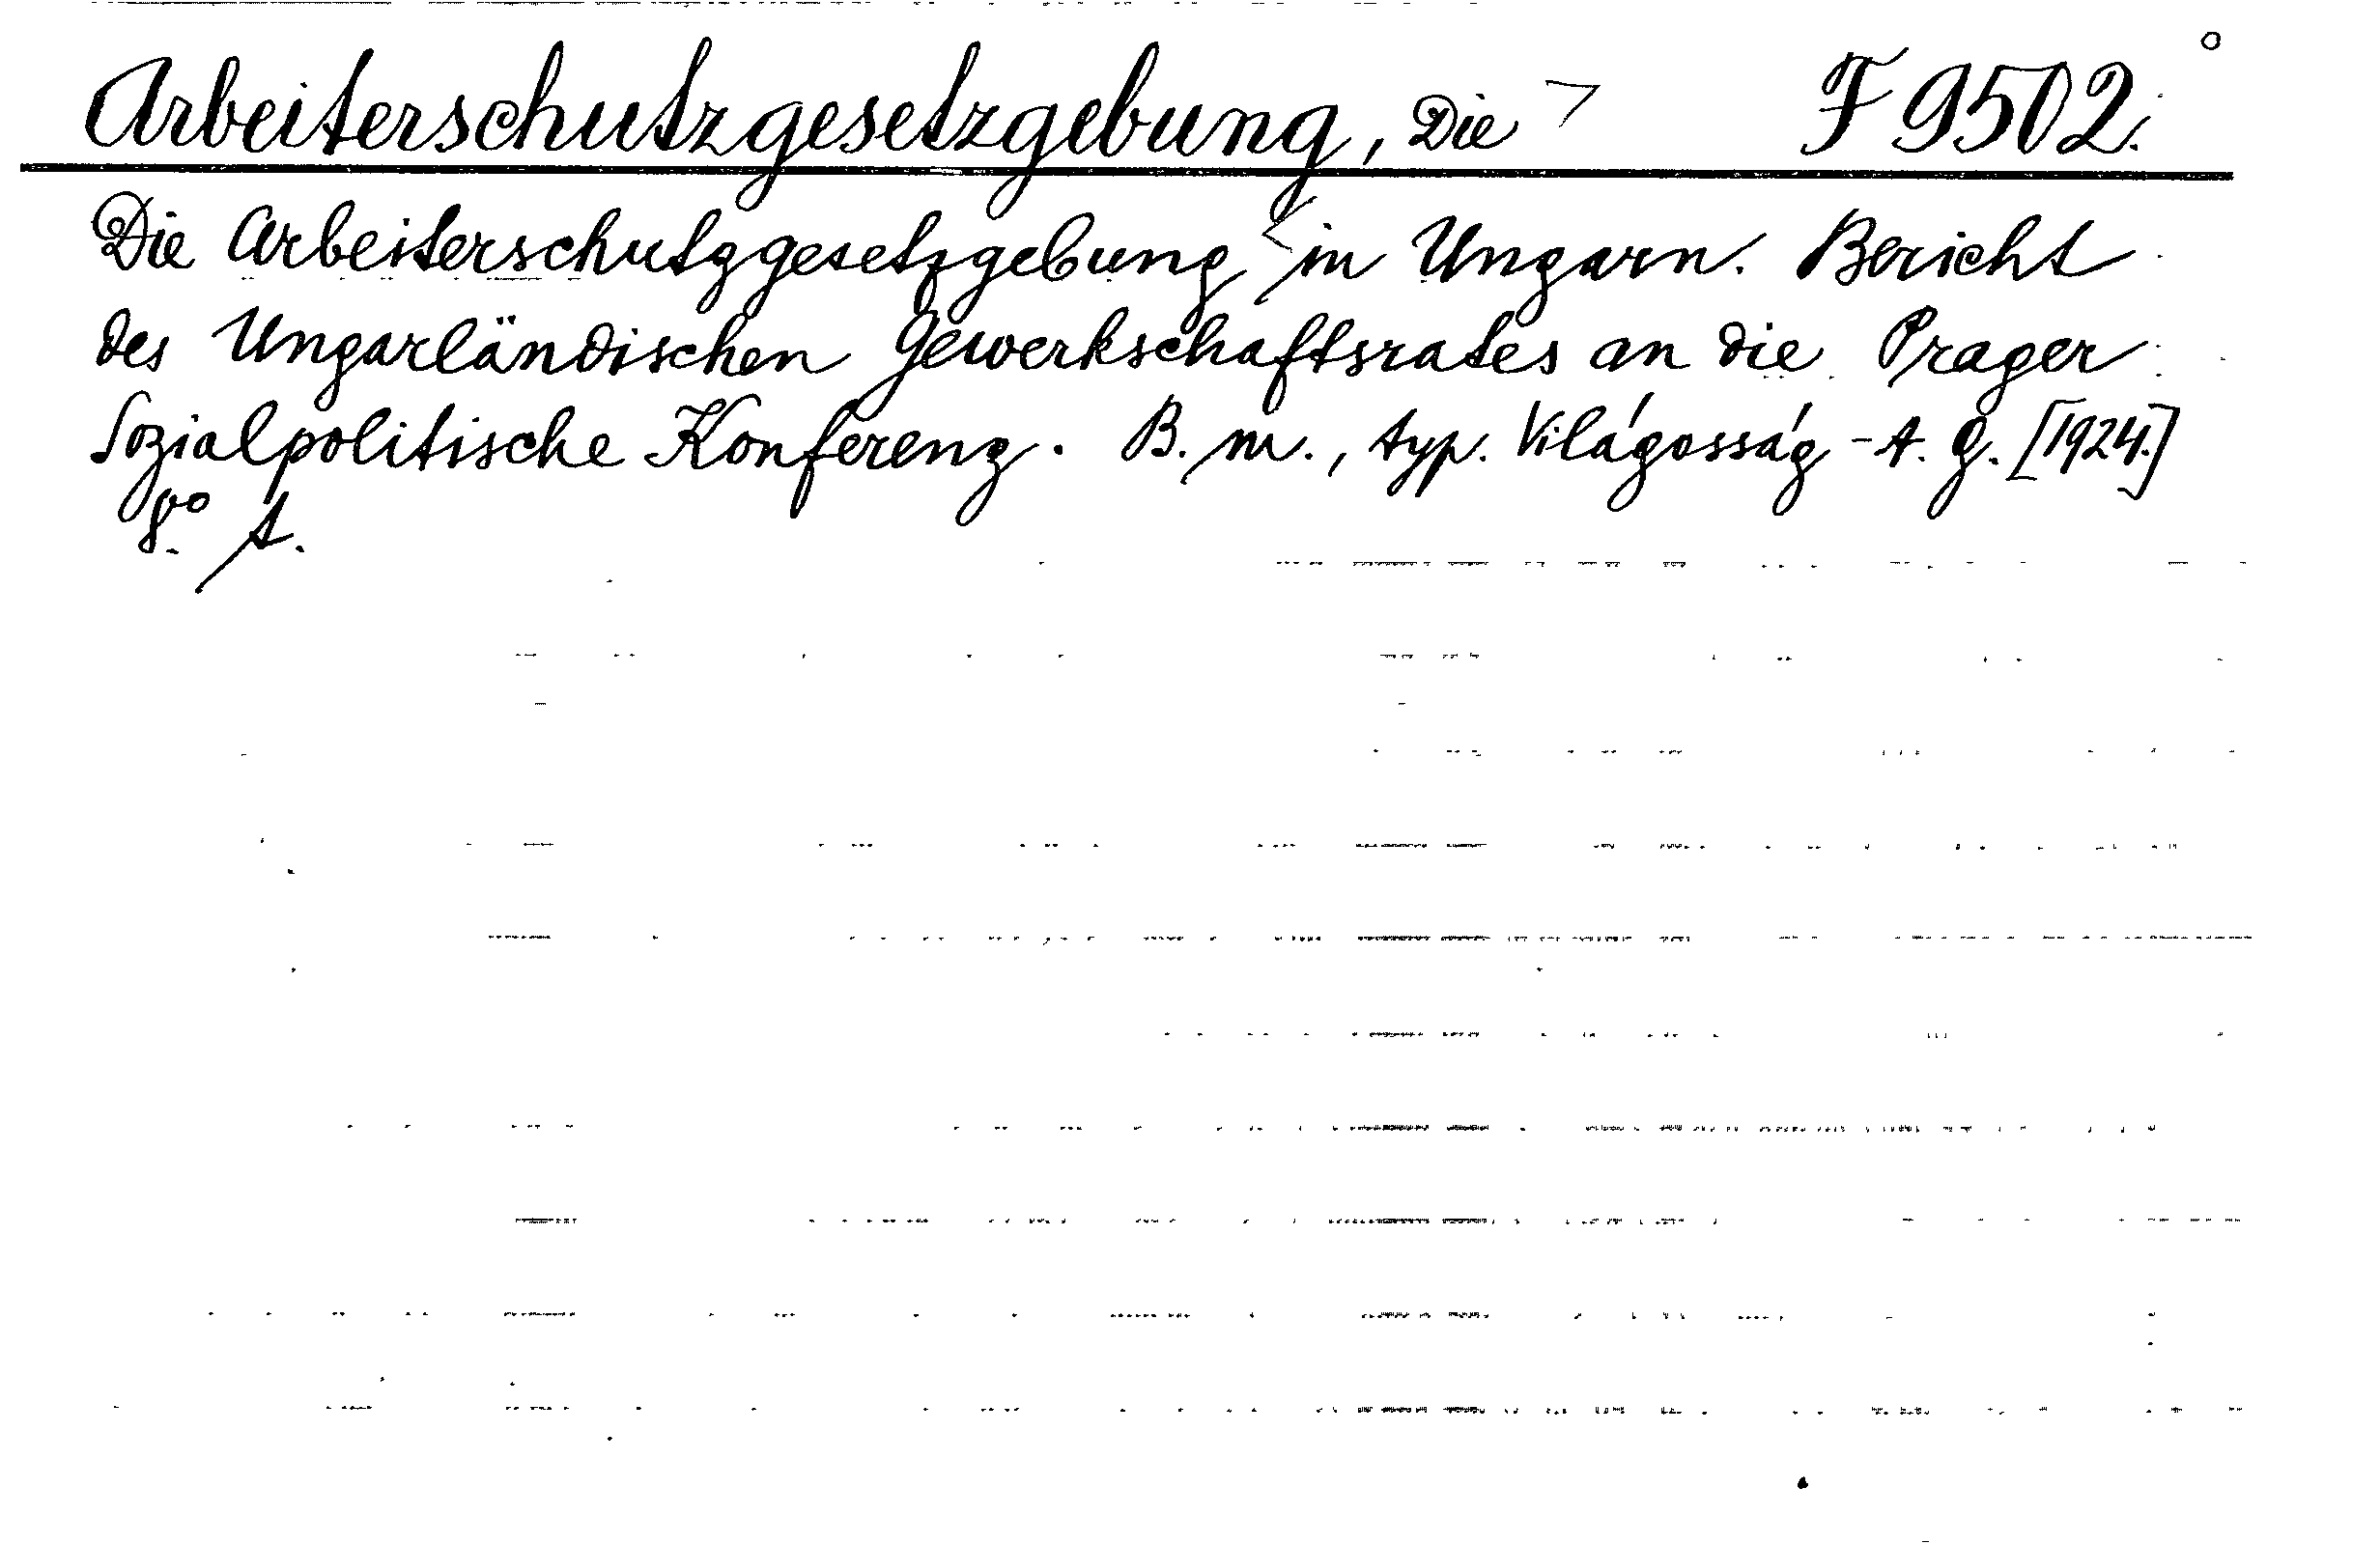 Arbeiterschutzgesetzgebung, Die F 9502.
Die Arbeiterschutzgesetzgebung in Ungarn. Bericht
des Ungarländischen Gewerkschaftsrates an die Prager
Sozialpolitische Konferenz. B. m., typ. Világosság-A. G. [1924.]
8.°